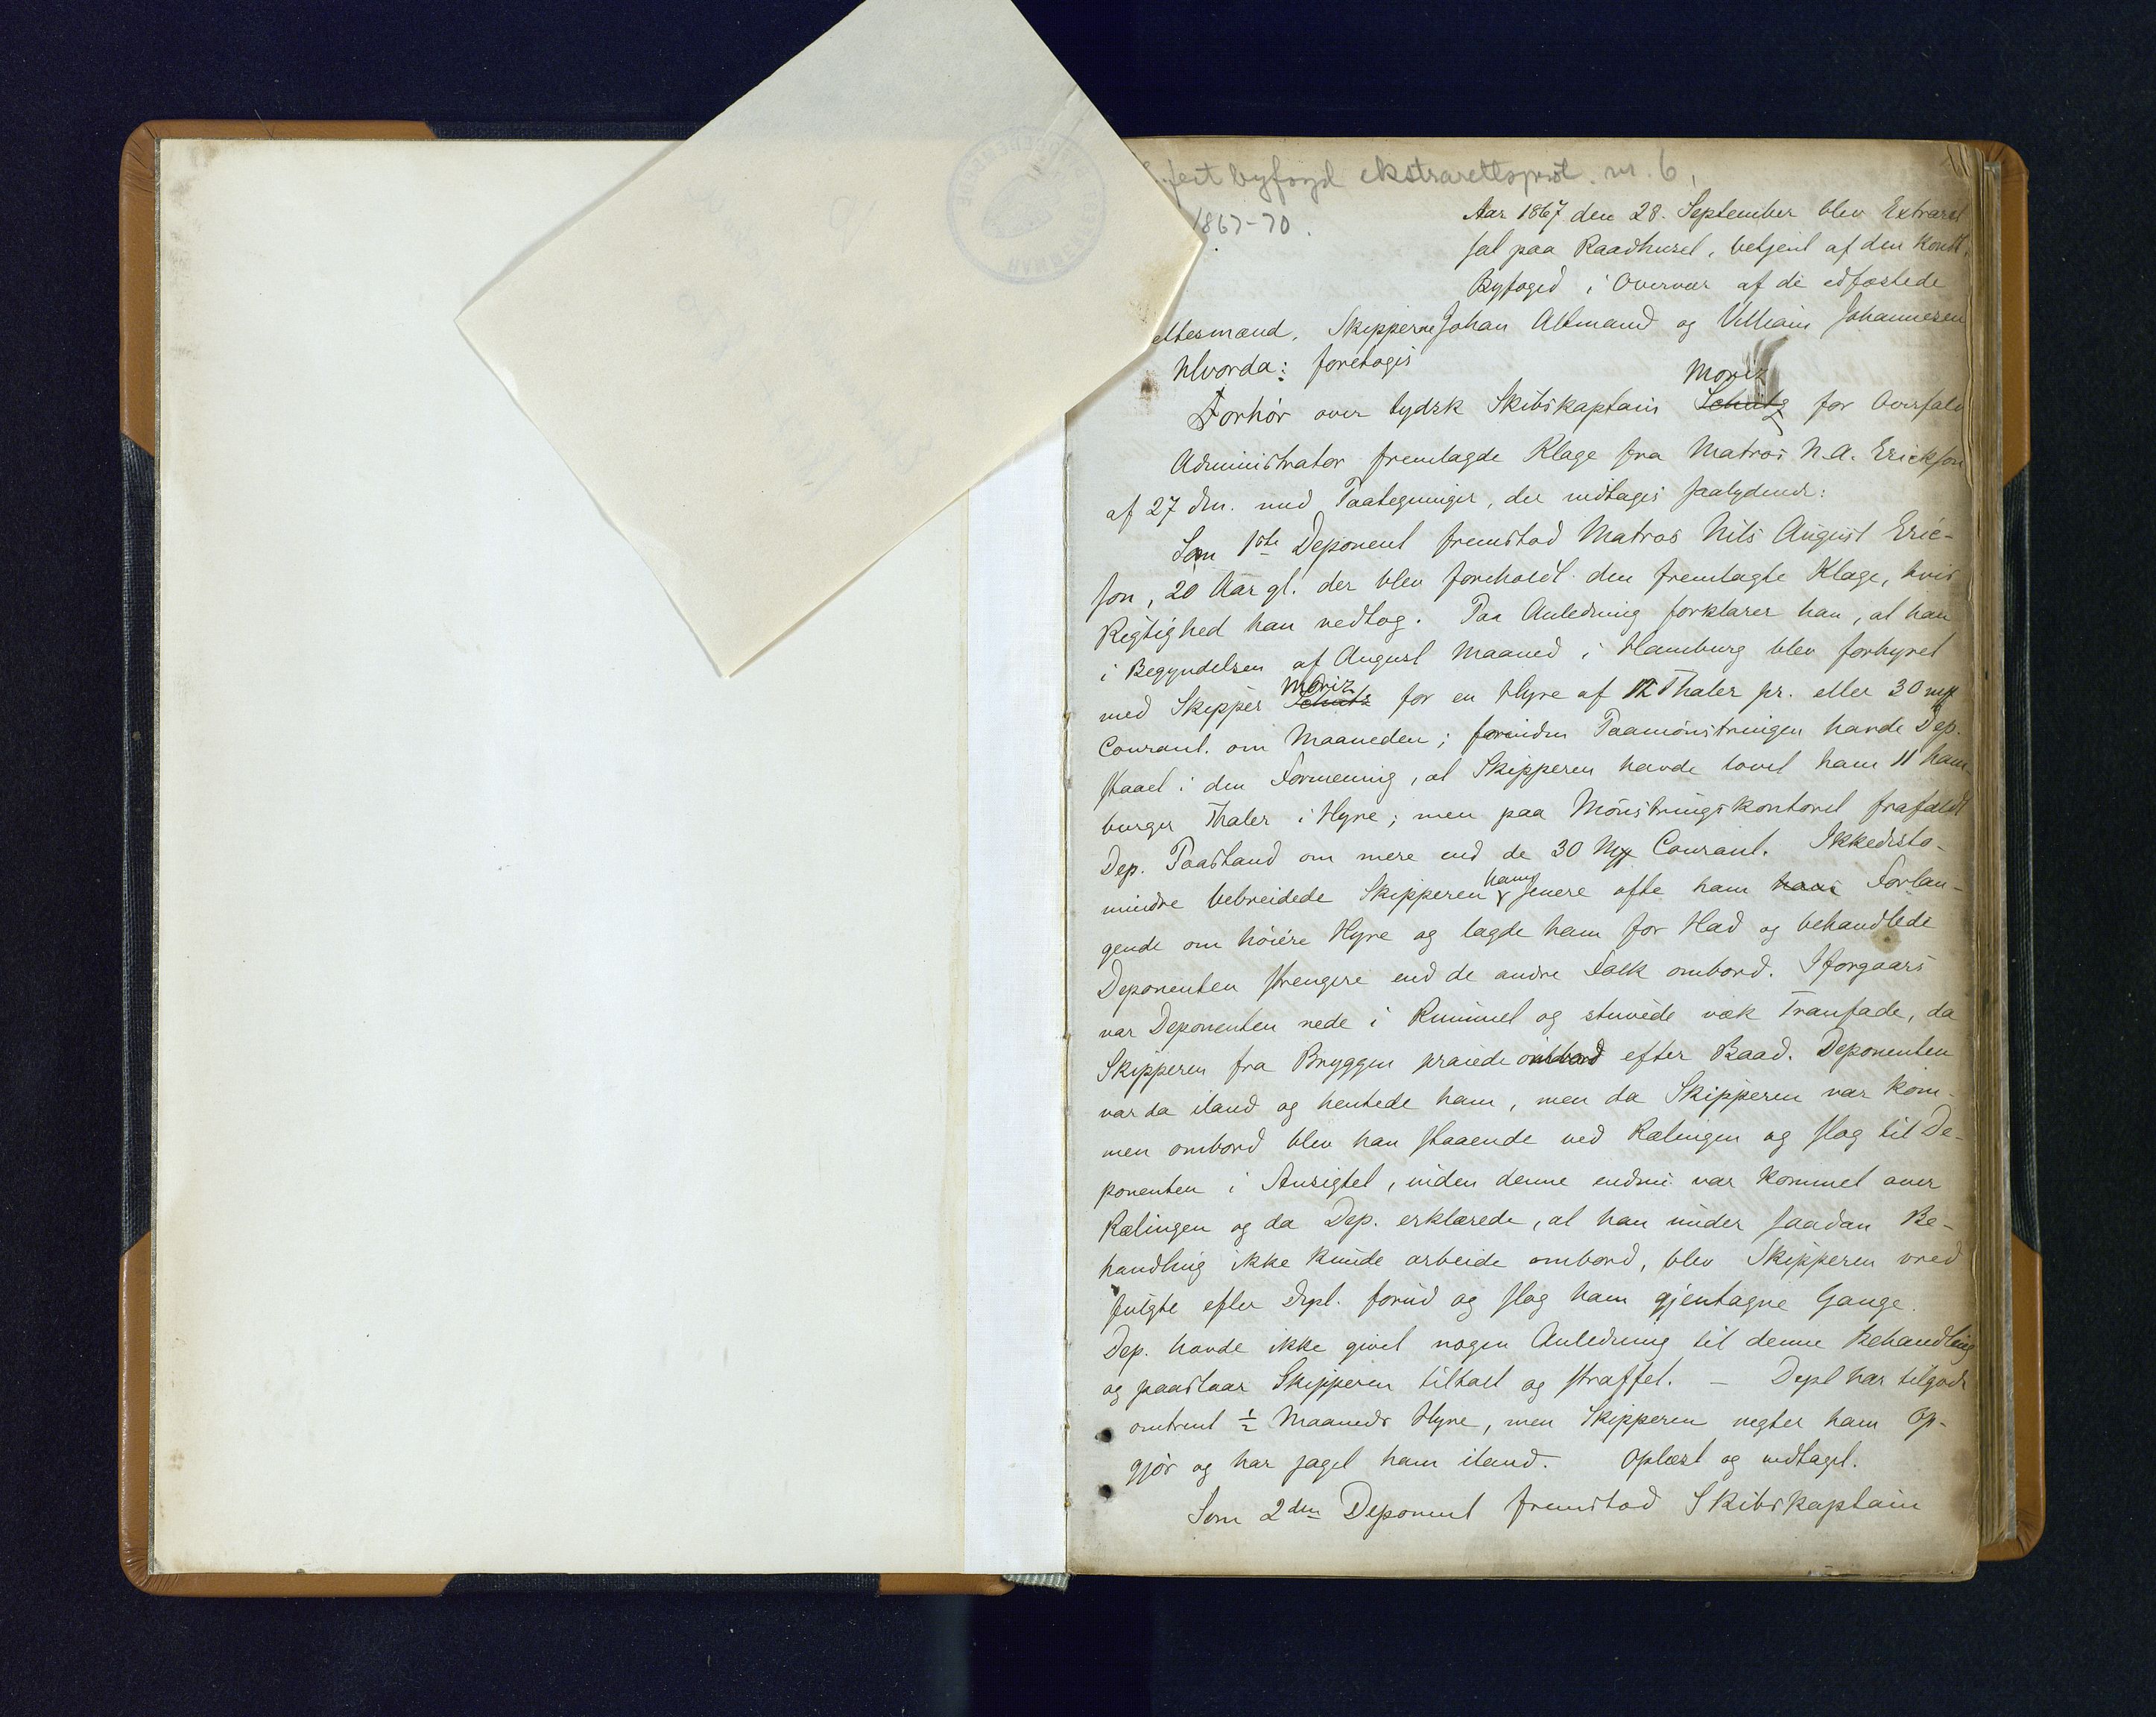 byfogd ekstrarettsprot. nr. 6,
1867-70.
Aar 1867 den 28. September blev Extraret
sat paa Raadhuset, betjent af den Konst.
Byfoged i Overvær af de edfæstede
ettesmænd, Skipperne Johan Altmand og Villiam Johannesen
Hvorda: foretoges
Moriz
Forhør over tydsk Skibskaptain Schütz for Overfald
Administrator fremlagde Klage fra Matros N.A. Erickson
af 27 dm. med Paategninger, der indtages saalydende:
Som 1ste Deponent fremstod Matros Nils August Eric-
son, 20 Aar gl. der blev foreholdt den fremlagte Klage, hvis
Rigtighed han vedtog. Paa Anledning forklarer han, at han
i Begyndelsen af August Maaned i Hamburg blev forhyret
Moriz
med Skipper Schütz for en Hyre af 12 Thaler pr. eller 30 my
Courant. om Maaneden; forinden Paamønstringen havde Dep.
staaet i den Formening, at Skipperen havde lovet ham 11 ham-
burger Thaler i Hyre; men paa Mønstringskontoret frafaldt
Dep. Paastand om mere end de 30 My Courant. Ikkedesto-
mindre bebreidede Skipperen ham senere ofte ham hans Forlan-
gende om høiere Hyre og lagde ham for Had og behandlede
Deponenten strengere end de andre Folk ombord. Iforgaars
var Deponenten nede i Rummet og stuvede væk Tranfade, da
Skipperen fra Bryggen praiede ombord efter Baad. Deponenten
var da iland og hentede ham, men da Skipperen var kom-
men ombord blev han staaende ved Rælingen og slog til De-
ponenten i Ansigtet, inden denne endnu var kommet over
Rælingen og da Dep. erklærede, at han under saadan Be-
handling ikke kunde arbeide ombord, blev Skipperen vred
fulgte efter Dept. forud og slog ham gjentagne Gange.
Dep. havde ikke givet nogen Anledning til denne Behandling
og paastaar Skipperen tiltalt og straffet. – Dept har tilgode
omtrent ½ Maaneds Hyre, men Skipperen negter ham Op-
gjør og har jaget ham iland. Oplæst og vedtaget.
Som 2den Deponent fremstod Skibskaptain